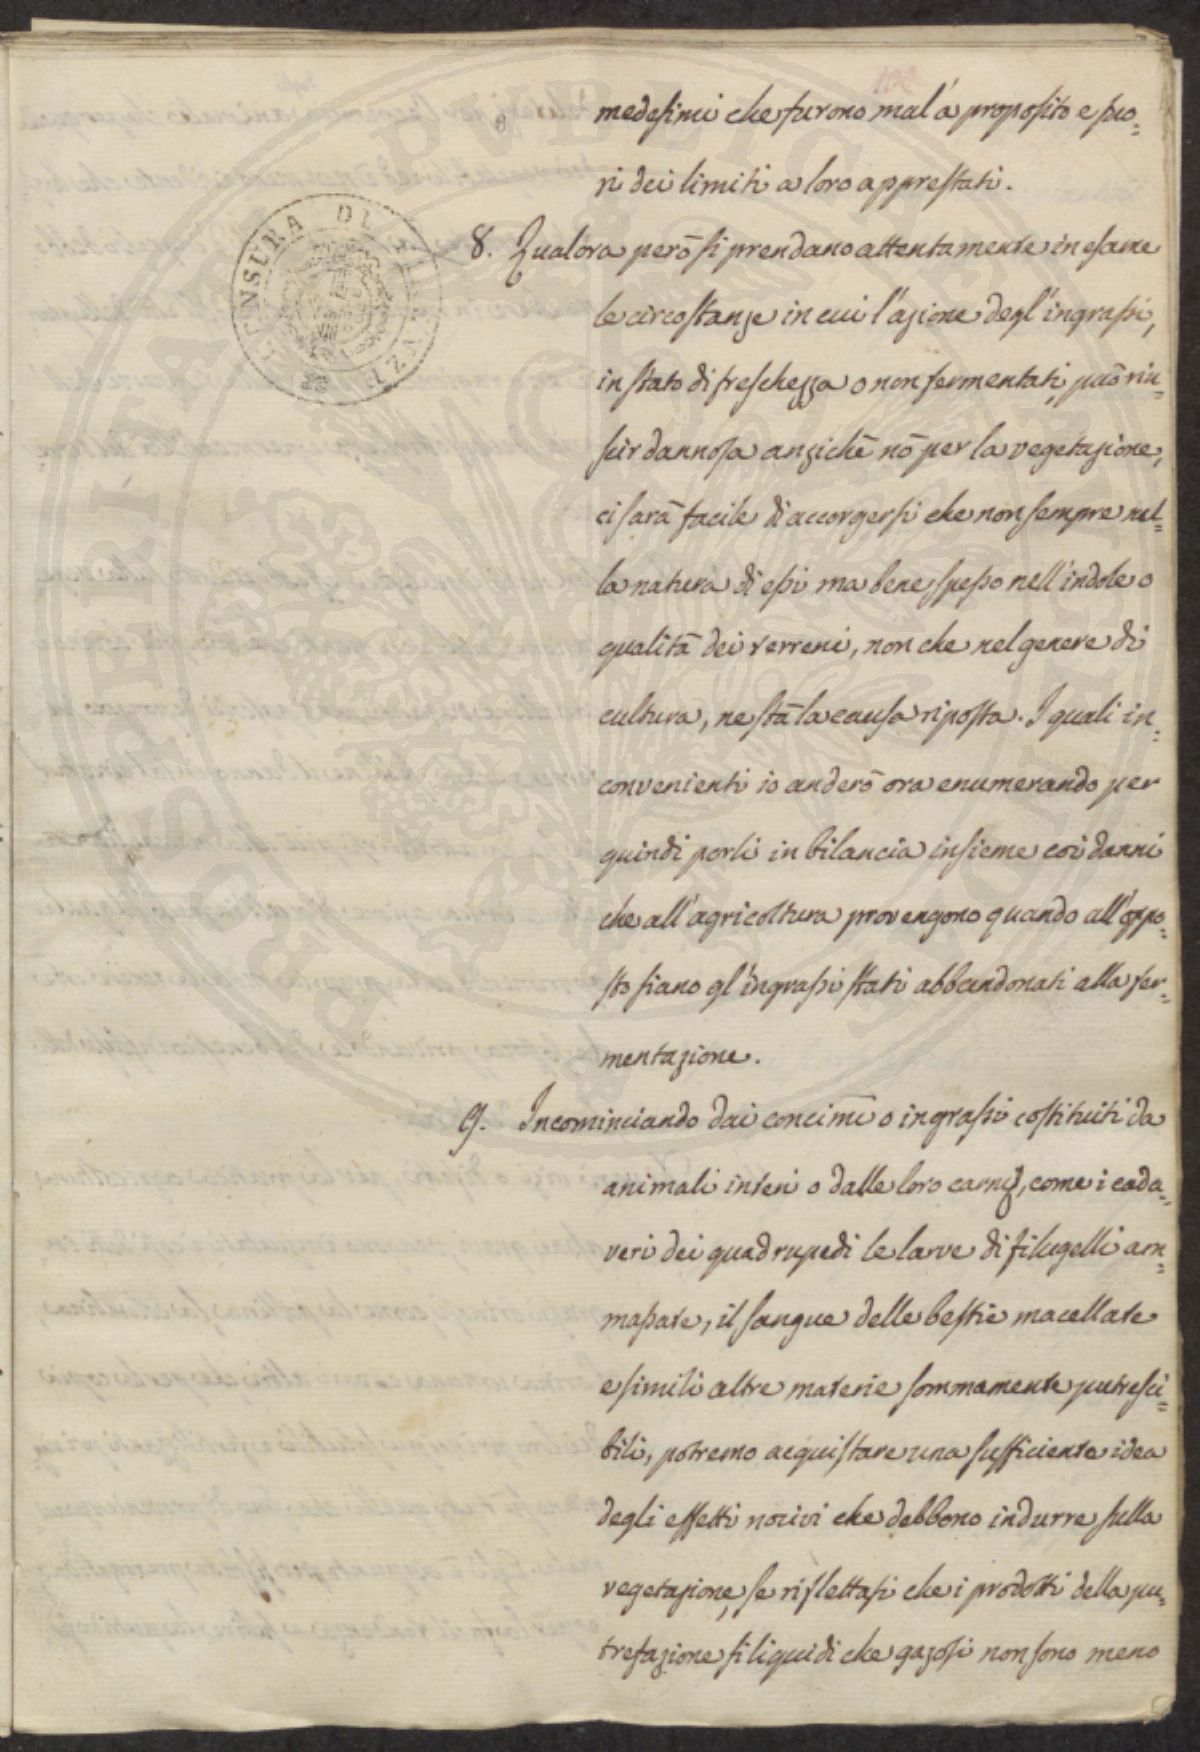 medesimi che furono mal'a proposito e fuo=
ri dei limiti a loro apprestati.
8. Qualora però si prendano attentamente in esame
le circostanze in cui l'azione degl'ingrassi,
in stato di freschezza o non fermentati, può riu=
scir dannosa anzichè nò per la vegetazione,
ci sarà facile di accorgersi che non sempre nel=
la natura di essi ma bene spesso nell'indole o
qualità dei terreni, non che nel genere di
cultura, ne stà la causa riposta. I quali in=
convenienti io anderò ora enumerando per
quindi porli in bilancia insieme coi danni
che all'agricoltura provengono quando all'oppo=
sto siano gl'ingrassi stati abbandonati alla fer=
mentazione.
9. Incominciando dai concimi o ingrassi costituiti da
animali interi o dalle loro carni, come i cada=
veri dei quadrupedi le larve di filugelli am=
massate, il sangue delle bestie macellate
e simili altre materie sommamente putresci=
bili, potremo acquistare una sufficiente idea
degli effetti nocivi che debbono indurre sulla
vegetazione, se riflettasi che i prodotti della pu=
trefazione sì liquidi che gazosi non sono meno
CENSURA DI FIRENZE
PROSPERITATI PUBLICAE AUGENDAE